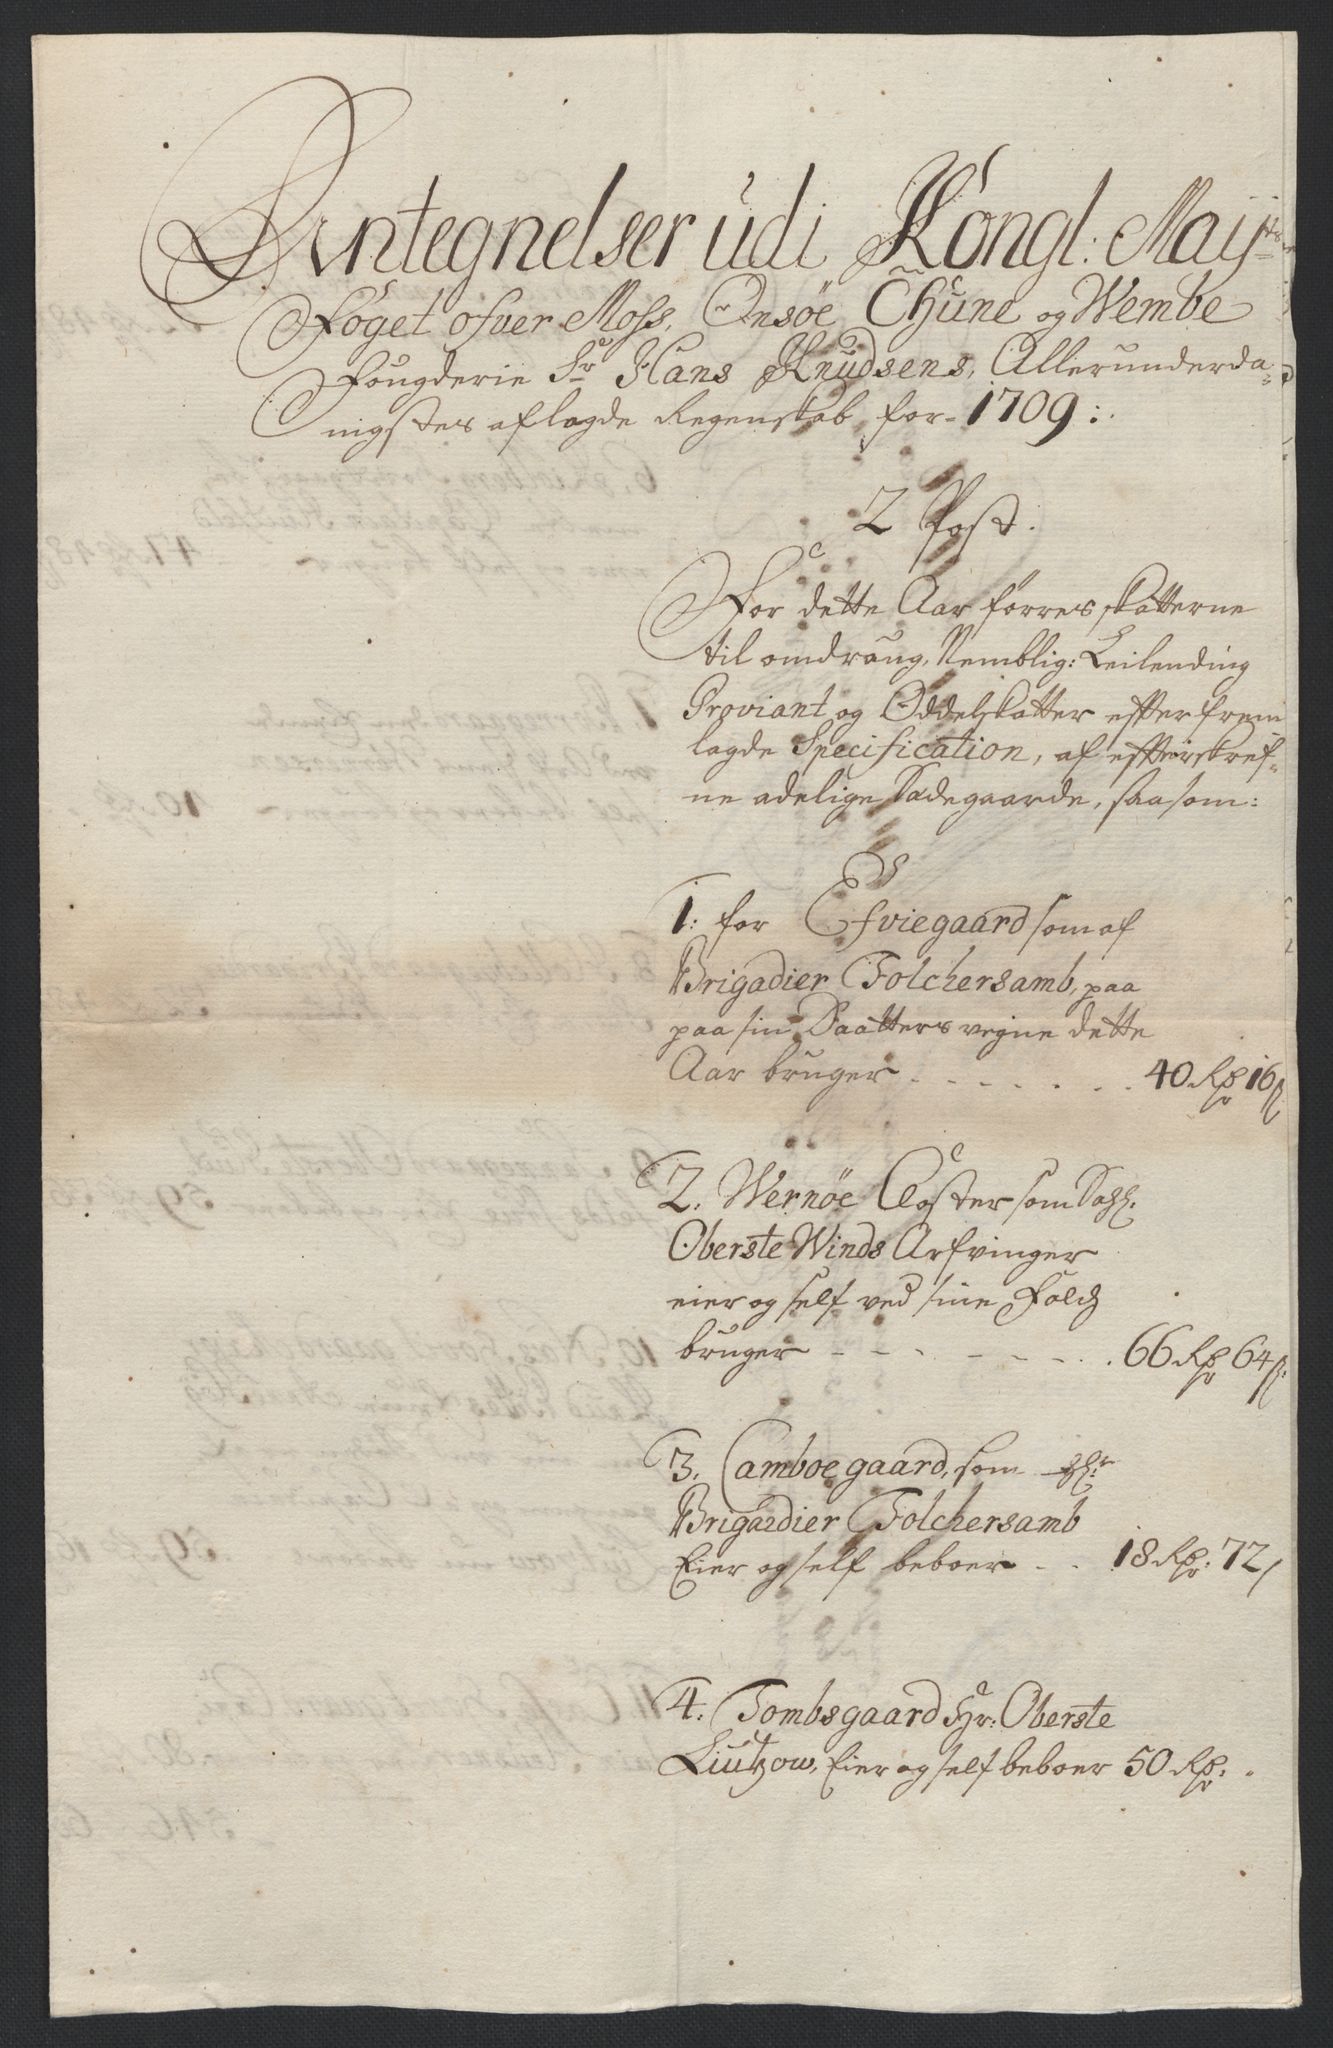 Antegnelser udi Kongl: Mayts
Foget ofver Moss, Onsöe, Thune og Wembe
Fougderie Sr Hans Knudsens, Allerunderda-
nigstes aflagde Regenskab for 1709:
2 Post.
For dette Aar förres skatterne
til omdraug, Nemblig: Leilending
Proviant og Oddelskatter efter frem
lagde Specification, af efterskref-
ne adelige Sædegaarde, saasom:
1: for Efviegaard som af
Brigadier Tolchersamb, paa
paa sin Daatters vegne dette
Aar bruger - - - - - 40 Rdr 16 s
2. Wernöe Closter som Sahl:
Oberste Winds Arfvinger
eier og self ved sine Folch
bruger - - - - - - 66 Rdr 64 s:
3. Camboegaard, som Hr:
Brigadier Tolchersamb
Eier og self beboer - - 18 Rdr: 72 s
4. Tombsgaard Hr: Oberste
Liutzow, Eier og self beboer 50 Rdr: -